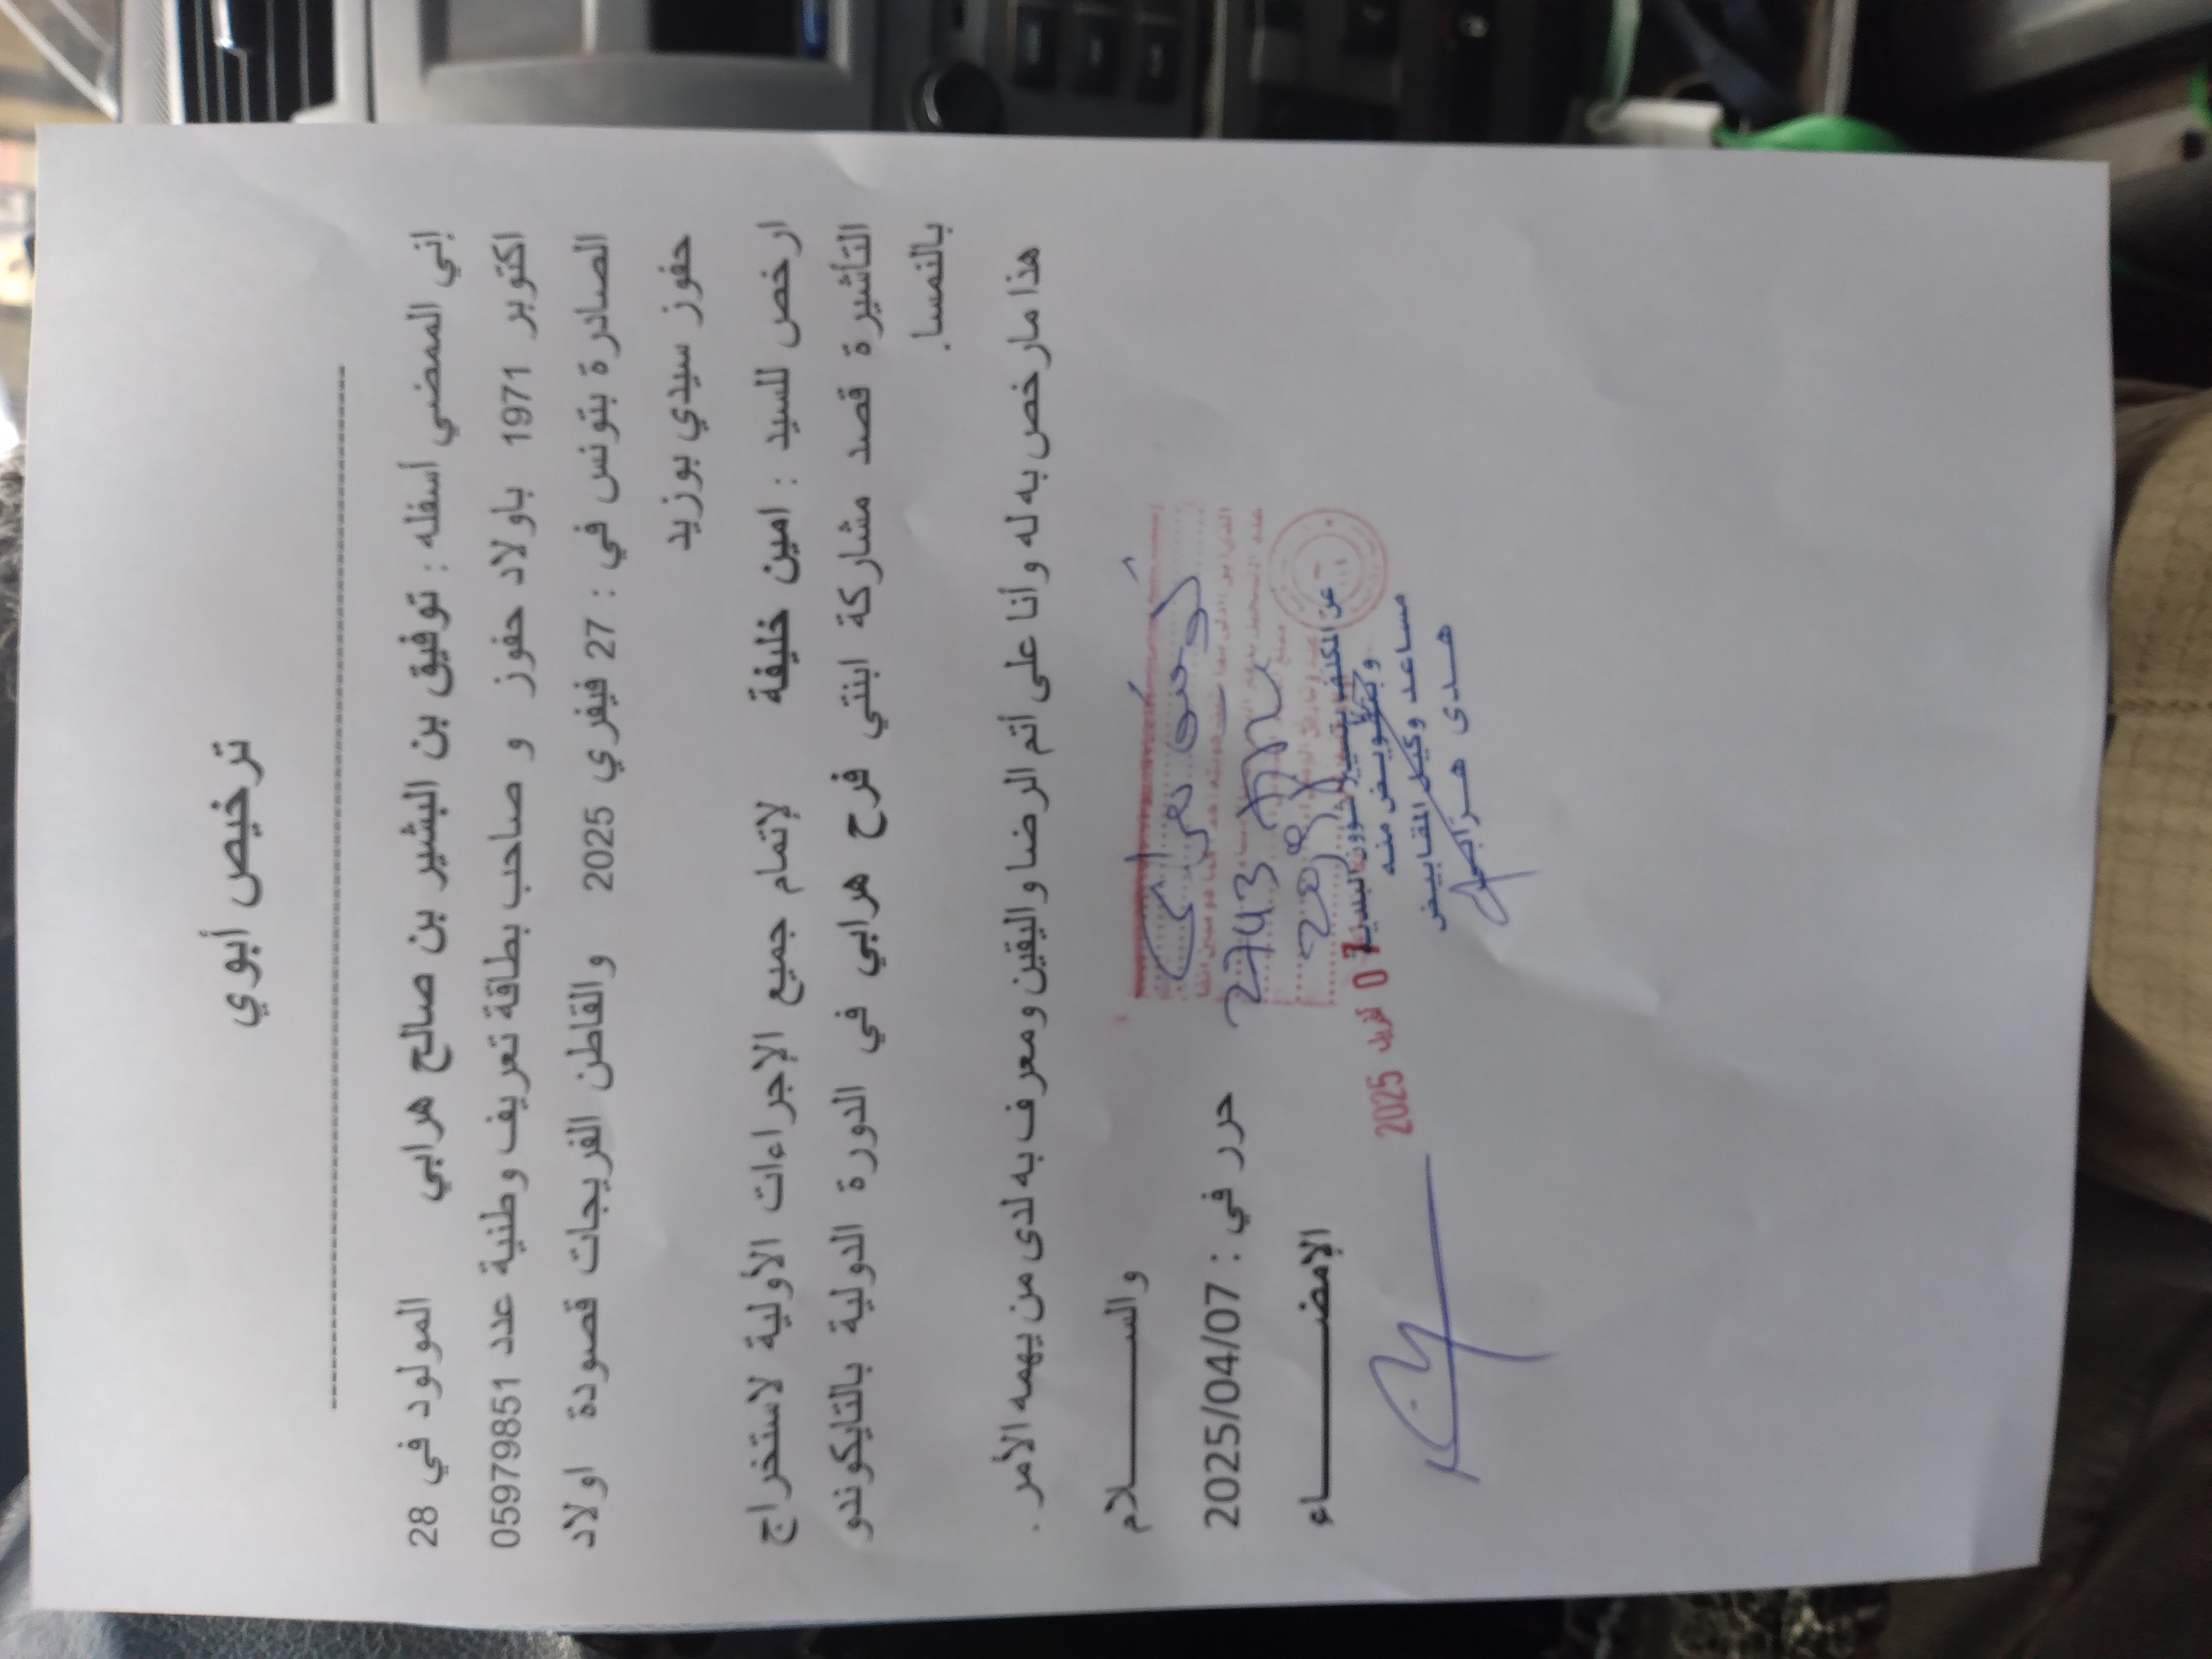 ترخيص أبوي
إني الممضي أسفله : توفيق بن البشير بن صالح هرابي المولود في 28
اكتوبر 1971 باولاد حفوز و صاحب بطاقة تعريف وطنية عدد 05979851
الصادرة بتونس في : 27 فيفري 2025 والقاطن الفريجات قصودة اولاد
حفوز سيدي بوزيد
ارخص للسيد : امين خليفة لإتمام جميع الإجراءات الأولية لاستخراج
التأشيرة قصد مشاركة ابنتي فرح هرابي في الدورة الدولية بالتايكوندو
بالنمسا.
هذا مارخص به له وأنا على أتم الرضا واليقين ومعرف به لدى من يهمه الأمر .
والســـــــــلام
حرر في : 2025/04/07
الإمضـــــــــاء
07 أفريل 2025
عن المكلف بتسيير شؤون البلدية
وبتفويض منه
مساعد وكيل المقابيض
هدى هرابي